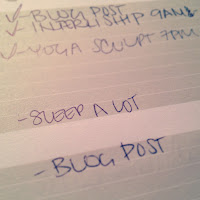 ✓-BLOG POST
✓-INTERNSHIP 9AM
✓-YOGA SCULPT 7PM
-SLEEP A LOT
-BLOG POST